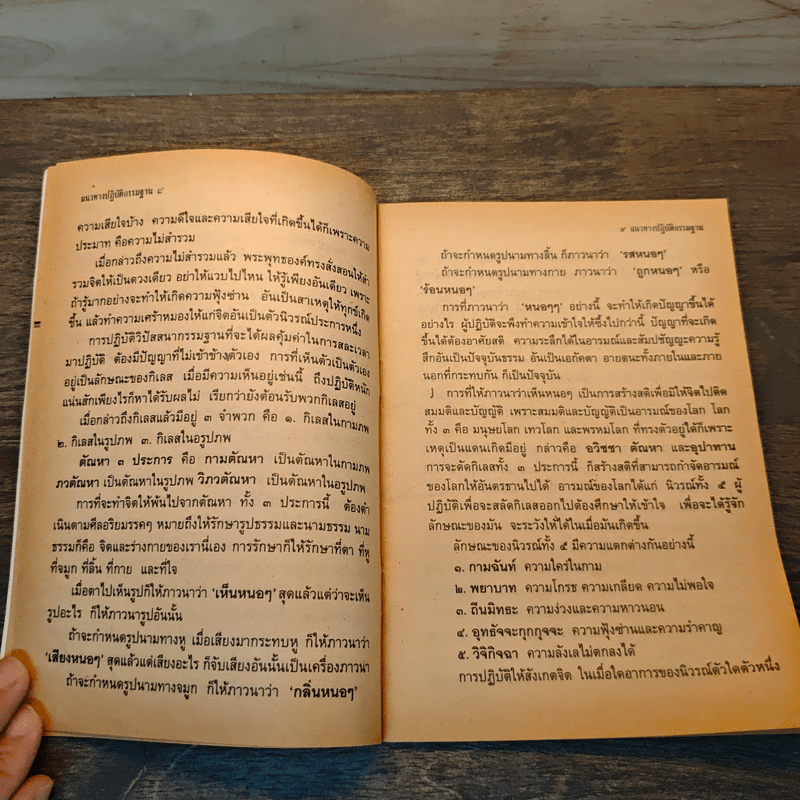 แนวทางปฏิบัติกรรมฐาน ๘
ความเสียใจบ้าง ความดีใจและความเสียใจที่เกิดขึ้นได้ก็เพราะความ
ประมาท คือความไม่สำรวม
เมื่อกล่าวถึงความไม่สำรวมแล้ว พระพุทธองค์ทรงสั่งสอนให้สำ
รวมจิตให้เป็นดวงเดียว อย่าให้แวบไปไหน ให้รู้เพียงอันเดียว เพราะ
ถ้ารู้มากอย่างจะทำให้เกิดความฟุ้งซ่าน อันเป็นสาเหตุให้ทุกข์เกิด
ขึ้น แล้วทำความเศร้าหมองให้แก่จิตอันเป็นตัวนิวรณ์ประการหนึ่ง
การปฏิบัติวิปัสสนากรรมฐานที่จะได้ผลคุ้มค่าในการสละเวลา
มาปฏิบัติ ต้องมีปัญญาที่ไม่เข้าข้างตัวเอง การที่เห็นตัวเป็นตัวเอง
อยู่เป็นลักษณะของกิเลส เมื่อมีความเห็นอยู่เช่นนี้ ถึงปฏิบัติหนัก
แน่นสักเพียงไรก็หาได้รับผลไม่ เรียกว่ายังต้อนรับพวกกิเลสอยู่
เมื่อกล่าวถึงกิเลสแล้วมีอยู่ ๓ จำพวก คือ ๑. กิเลสในกามภพ
๒. กิเลสในรูปภพ ๓. กิเลสในอรูปภพ
ตัณหา ๓ ประการ คือ กามตัณหา เป็นตัณหาในกามภพ
ภวตัณหา เป็นตัณหาในรูปภพ วิภวตัณหา เป็นตัณหาในอรูปภพ
การที่จะทำจิตให้พ้นไปจากตัณหา ทั้ง ๓ ประการนี้ ต้องดำ
เนินตามศีลอริยมรรคๆ หมายถึงให้รักษารูปธรรมและนามธรรม นาม
ธรรมก็คือ จิตและร่างกายของเรานี่เอง การรักษาก็ให้รักษาที่ตา ที่หู
ที่จมูก ที่ลิ้น ที่กาย และที่ใจ
เมื่อตาไปเห็นรูปก็ให้ภาวนาว่า 'เห็นหนอๆ' สุดแล้วแต่ว่าจะเห็น
รูปอะไร ก็ให้ภาวนารูปอันนั้น
ถ้าจะกำหนดรูปนามทางหู เมื่อเสียงมากระทบหู ก็ให้ภาวนาว่า
'เสียงหนอๆ' สุดแล้วแต่เสียงอะไร ก็จับเสียงอันนั้นเป็นเครื่องภาวนา
ถ้าจะกำหนดรูปนามทางจมูก ก็ให้ภาวนาว่า 'กลิ่นหนอๆ'
๙ แนวทางปฏิบัติกรรมฐาน
ถ้าจะกำหนดรูปนามทางลิ้น ก็ภาวนาว่า 'รสหนอๆ'
ถ้าจะกำหนดรูปนามทางกาย ภาวนาว่า 'ถูกหนอๆ' หรือ
'ร้อนหนอๆ'
การที่ภาวนาว่า 'หนอๆๆ' อย่างนี้ จะทำให้เกิดปัญญาขึ้นได้
อย่างไร ผู้ปฏิบัติจะพึงทำความเข้าใจให้ซึ้งไปกว่านี้ ปัญญาที่จะเกิด
ขึ้นได้ต้องอาศัยสติ ความระลึกได้ในอารมณ์และสัมปชัญญะความรู้
สึกอันเป็นปัจจุบันธรรม อันเป็นเอกัคตา อายตนะทั้งภายในและภาย
นอกที่กระทบกัน ก็เป็นปัจจุบัน
การที่ให้ภาวนาว่าเห็นหนอๆ เป็นการสร้างสติเพื่อมิให้จิตไปติด
สมมติและบัญญัติ เพราะสมมติและบัญญัติเป็นอารมณ์ของโลก โลก
ทั้ง ๓ คือ มนุษย์โลก เทวโลก และพรหมโลก ที่ทรงตัวอยู่ได้ก็เพราะ
เหตุเป็นแดนเกิดมีอยู่ กล่าวคือ อวิชชา ตัณหา และอุปาทาน
การจะตัดกิเลสทั้ง ๓ ประการนี้ ก็สร้างสติที่สามารถกำจัดอารมณ์
ของโลกให้อันตรธานไปได้ อารมณ์ของโลกได้แก่ นิวรณ์ทั้ง ๕ ผู้
ปฏิบัติเพื่อจะสลัดกิเลสออกไปต้องศึกษาให้เข้าใจ เพื่อจะได้รู้จัก
ลักษณะของมัน จะระวังให้ได้ในเมื่อมันเกิดขึ้น
ลักษณะของนิวรณ์ทั้ง ๕ มีความแตกต่างกันอย่างนี้
๑. กามฉันท์ ความใคร่ในกาม
๒. พยาบาท ความโกรธ ความเกลียด ความไม่พอใจ
๓. ถีนมิทธะ ความง่วงและความหาวนอน
๔. อุทธัจจะกุกกุจจะ ความฟุ้งซ่านและความรำคาญ
๕. วิจิกิจฉา ความลังเลไม่ตกลงได้
การปฏิบัติให้สังเกตจิต ในเมื่อใดอาการของนิวรณ์ตัวใดตัวหนึ่ง